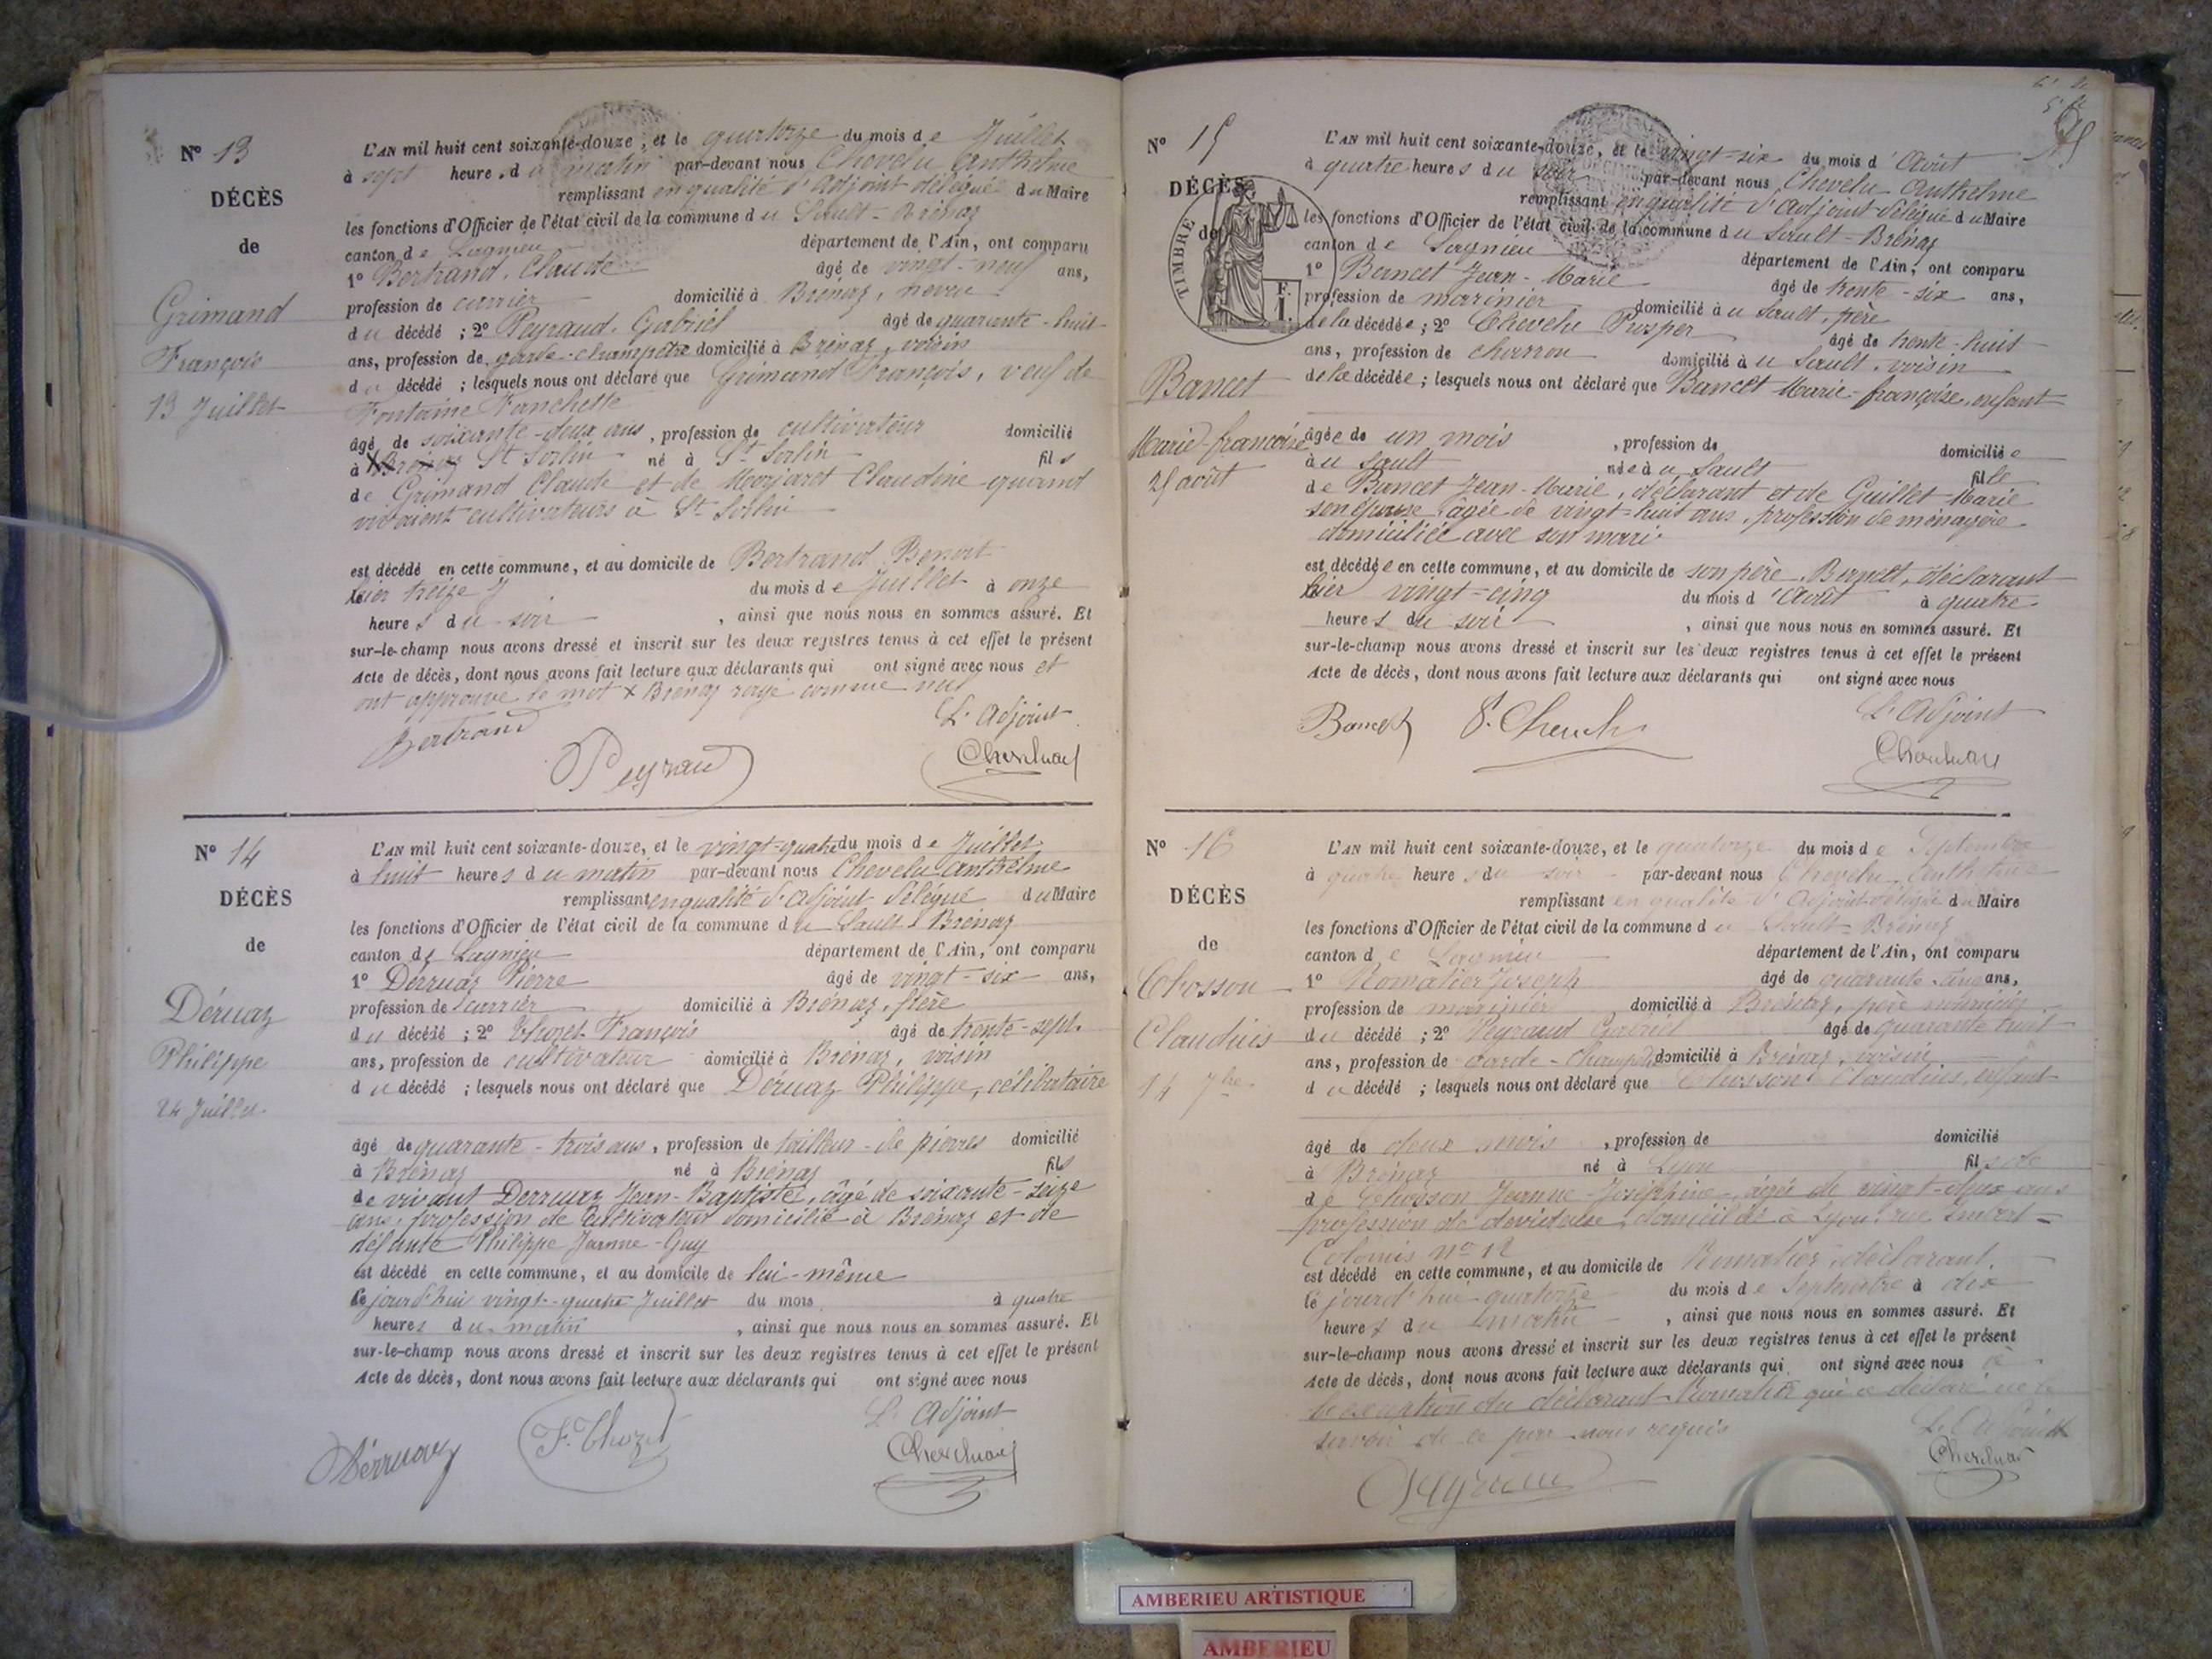 N° 13
DÉCÈS
de
Grimand
François
13 Juillet
L'AN mil huit cent soixante-douze, et le quatorze du mois de Juillet
à sept heures du matin par-devant nous Chevelu Anthelme
remplissant en qualité d'Adjoint délégué du Maire
les fonctions d'Officier de l'état civil de la commune du Sault-Brénaz
canton de Lagnieu département de l'Ain, ont comparu
1° Bertrand Claude âgé de vingt-neuf ans,
profession de carrier domicilié à Brénaz, neveu
du décédé ; 2° Peyraud Gabriel âgé de quarante-huit
ans, profession de garde-champêtre domicilié à Brénaz, voisin
du décédé ; lesquels nous ont déclaré que Grimand François, veuf de
Fontaine Fanchette
âgé de soixante-deux ans, profession de cultivateur domicilié
à Brénaz St Sorlin né à St Sorlin fils
de Grimand Claude et de Morjaret Claudine quand
vivaient cultivateurs à St Sorlin
est décédé en cette commune, et au domicile de Bertrand Benoit
hier treize du mois de Juillet à onze
heures du soir, ainsi que nous nous en sommes assuré. Et
sur-le-champ nous avons dressé et inscrit sur les deux registres tenus à cet effet le présent
Acte de décès, dont nous avons fait lecture aux déclarants qui ont signé avec nous et
ont approuvé le mot x Brénaz rayé comme nul
L'Adjoint
Bertrand
Peyraud
N° 14
DÉCÈS
de
Déruaz
Philippe
24 Juillet
L'AN mil huit cent soixante-douze, et le vingt-quatre du mois de Juillet
à huit heures du matin par-devant nous Chevelu Anthelme
remplissant en qualité d'Adjoint délégué du Maire
les fonctions d'Officier de l'état civil de la commune du Sault-Brénaz
canton de Lagnieu département de l'Ain, ont comparu
1° Dérruaz Pierre âgé de vingt-six ans,
profession de carrier domicilié à Brénaz, frère
du décédé ; 2° Thozet François âgé de trente-sept
ans, profession de cultivateur domicilié à Brénaz, voisin
du décédé ; lesquels nous ont déclaré que Déruaz Philippe, célibataire
âgé de quarante-trois ans, profession de tailleur de pierres domicilié
à Brénaz né à Brénaz fils
de vivant Derruaz Jean-Baptiste, âgé de soixante-seize
ans, profession de cultivateur domicilié à Brénaz et de
défunte Philippe Jeanne-Guy
est décédé en cette commune, et au domicile de lui-même
le jourd'hui vingt-quatre Juillet du mois à quatre
heures du matin, ainsi que nous nous en sommes assuré. Et
sur-le-champ nous avons dressé et inscrit sur les deux registres tenus à cet effet le présent
Acte de décès, dont nous avons fait lecture aux déclarants qui ont signé avec nous
L'Adjoint
Dérruaz F. Thozet
N° 15
DÉCÈS
de
TIMBRE
F.
1.
Bancet
Marie-françoise
25 août
L'AN mil huit cent soixante-douze, et le vingt-six du mois d'Août
à quatre heures du soir par-devant nous Chevelu Anthelme
remplissant en qualité d'Adjoint délégué du Maire
les fonctions d'Officier de l'état civil de la commune du Sault-Brénaz
canton de Lagnieu département de l'Ain, ont comparu
1° Bancet Jean-Marie âgé de trente-six ans,
profession de marinier domicilié à u Sault, père
de la décédée ; 2° Chevelu Prosper âgé de trente-huit
ans, profession de charron domicilié à u Sault, voisin
de la décédée ; lesquels nous ont déclaré que Bancet Marie-françoise, enfant
âgée de un mois, profession de domiciliée
à u Sault née à u Sault fille
de Bancet Jean-Marie, déclarant et de Guillet Marie
son épouse âgée de vingt-huit ans, profession de ménagère
domiciliée avec son mari
est décédée en cette commune, et au domicile de son père, Bancet, déclarant
hier vingt-cinq du mois d'Août à quatre
heures du soir, ainsi que nous nous en sommes assuré. Et
sur-le-champ nous avons dressé et inscrit sur les deux registres tenus à cet effet le présent
Acte de décès, dont nous avons fait lecture aux déclarants qui ont signé avec nous
L'Adjoint
Bancet
N° 16
DÉCÈS
de
Chosson
Claudius
14 7bre
L'AN mil huit cent soixante-douze, et le quatorze du mois de Septembre
à quatre heures du soir par-devant nous Chevelu Anthelme
remplissant en qualité d'Adjoint délégué du Maire
les fonctions d'Officier de l'état civil de la commune du Sault-Brénaz
canton de Lagnieu département de l'Ain, ont comparu
1° Romatier Joseph âgé de quarante ans,
profession de marinier domicilié à Brénaz, père nourricier
du décédé ; 2° Peyraud Gabriel âgé de quarante huit
ans, profession de Garde-Champêtre domicilié à Brénaz, voisin
du décédé ; lesquels nous ont déclaré que Chosson Claudius, enfant
âgé de deux mois, profession de domicilié
à Brénaz né à Lyon fils de
de Chosson Jeanne-Joséphine, âgée de vingt-deux ans
profession de dévideuse, domiciliée à Lyon, rue Imbert-
Colomès n° 12
est décédé en cette commune, et au domicile de Romatier, déclarant,
le jourd'hui quatorze du mois de Septembre à dix
heures du matin, ainsi que nous nous en sommes assuré. Et
sur-le-champ nous avons dressé et inscrit sur les deux registres tenus à cet effet le présent
Acte de décès, dont nous avons fait lecture aux déclarants qui ont signé avec nous à
l'exception du déclarant Romatier qui a déclaré ne
savoir de ce faire nous requis
L'Adjoint
Peyraud
AMBERIEU ARTISTIQUE
AMBERIEU